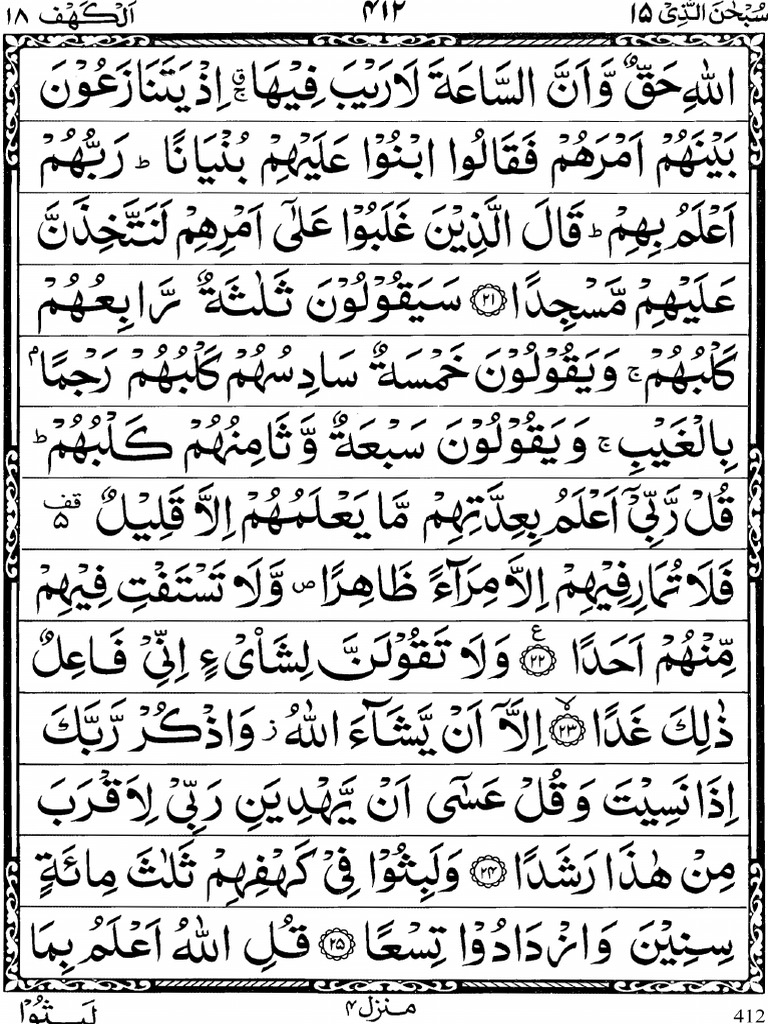 سُبْحٰنَ الَّذِیْۤ ۱۵ ۴۱۲ اَلْکَهْف ۱۸
اللّٰهِ حَقٌّ وَّاَنَّ السَّاعَةَ لَا رَیْبَ فِیْهَا ۚ۫ اِذْ یَتَنَازَعُوْنَ
بَیْنَهُمْ اَمْرَهُمْ فَقَالُوا ابْنُوْا عَلَیْهِمْ بُنْیَانًا ؕ رَبُّهُمْ
اَعْلَمُ بِهِمْ ؕ قَالَ الَّذِیْنَ غَلَبُوْا عَلٰۤی اَمْرِهِمْ لَنَتَّخِذَنَّ
عَلَیْهِمْ مَّسْجِدًا ﴿۲۱﴾ سَیَقُوْلُوْنَ ثَلٰثَةٌ رَّابِعُهُمْ
کَلْبُهُمْ ۚ وَیَقُوْلُوْنَ خَمْسَةٌ سَادِسُهُمْ کَلْبُهُمْ رَجْمًۢا
بِالْغَیْبِ ۚ وَیَقُوْلُوْنَ سَبْعَةٌ وَّثَامِنُهُمْ کَلْبُهُمْ ؕ
قُلْ رَّبِّیْۤ اَعْلَمُ بِعِدَّتِهِمْ مَّا یَعْلَمُهُمْ اِلَّا قَلِیْلٌ قف ۵
فَلَا تُمَارِ فِیْهِمْ اِلَّا مِرَآءً ظَاهِرًا ۪ وَّلَا تَسْتَفْتِ فِیْهِمْ
مِّنْهُمْ اَحَدًا ﴿۲۲﴾ ع وَلَا تَقُوْلَنَّ لِشَایْءٍ اِنِّیْ فَاعِلٌ
ذٰلِكَ غَدًا ﴿۲۳﴾ۙ اِلَّاۤ اَنْ یَّشَآءَ اللّٰهُ ز وَاذْکُرْ رَّبَّكَ
اِذَا نَسِیْتَ وَقُلْ عَسٰۤی اَنْ یَّهْدِیَنِ رَبِّیْ لِاَقْرَبَ
مِنْ هٰذَا رَشَدًا ﴿۲۴﴾ وَلَبِثُوْا فِیْ کَهْفِهِمْ ثَلٰثَ مِائَةٍ
سِنِیْنَ وَازْدَادُوْا تِسْعًا ﴿۲۵﴾ قُلِ اللّٰهُ اَعْلَمُ بِمَا
لَبِثُوْا
منزل ۴
412